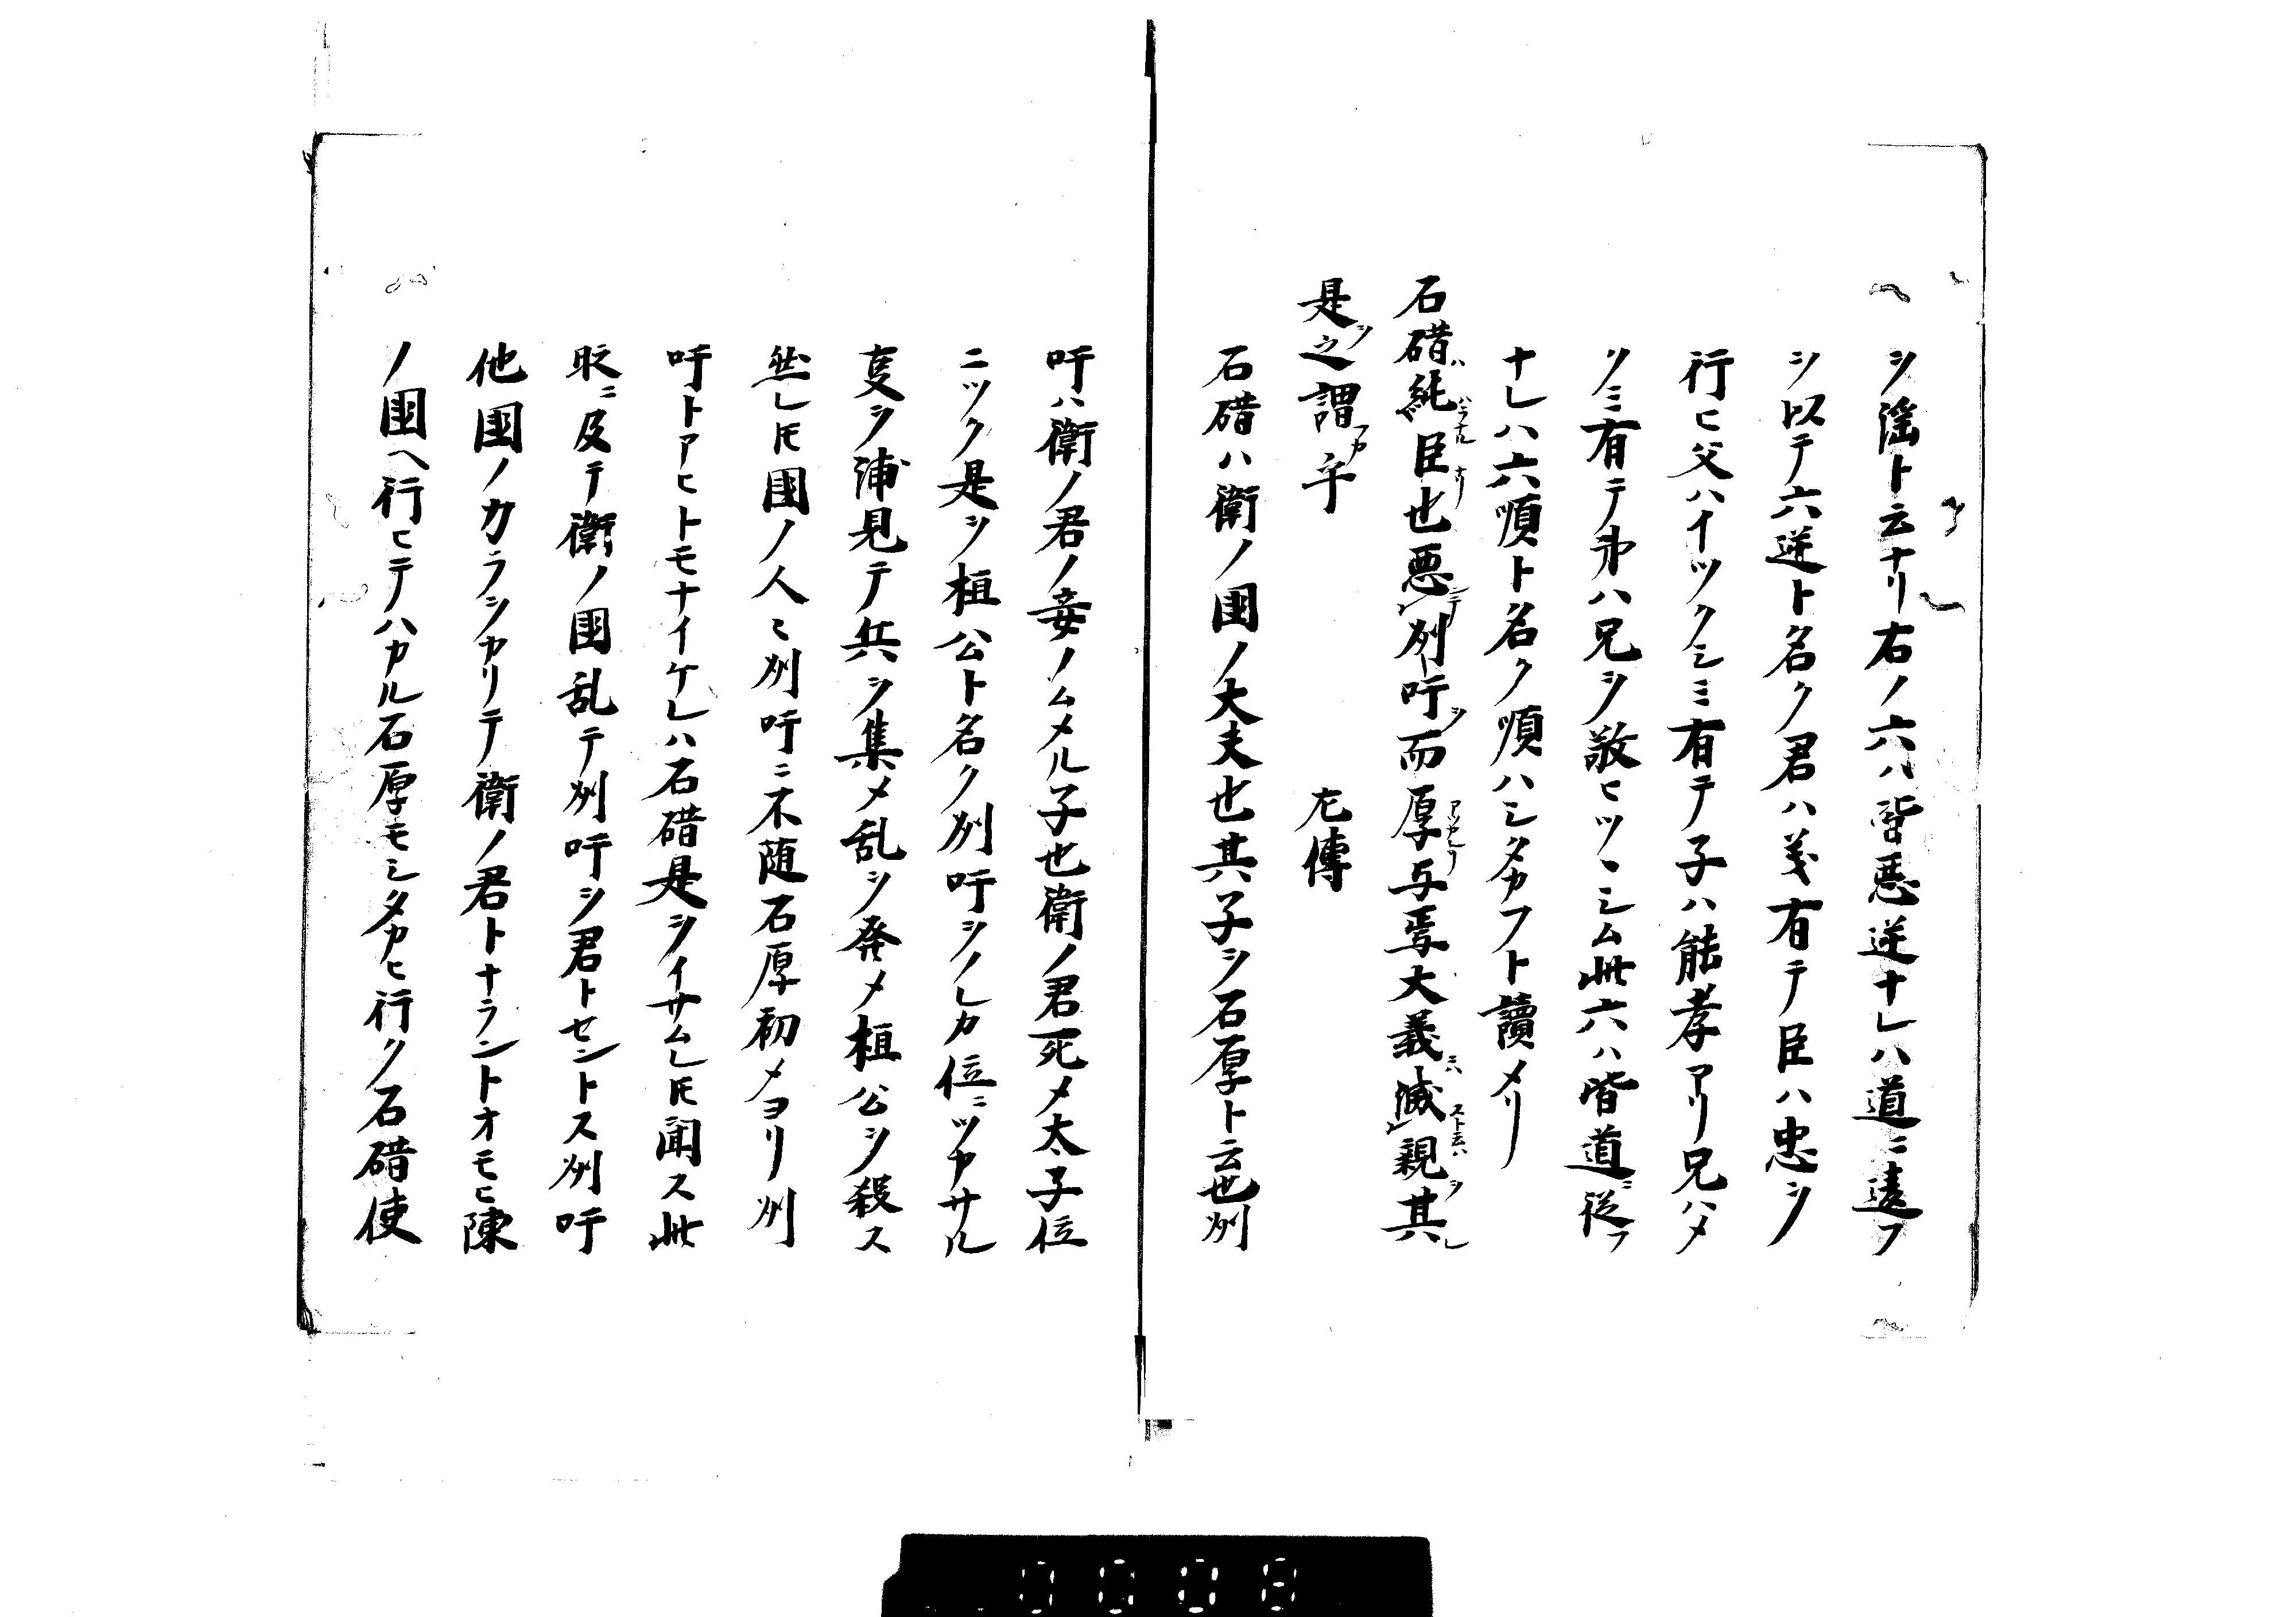 ヲ淫ト云ナリ右ノ六ハ皆悪逆ナレハ道ニ違フ
ヲ以テ六逆ト名ク君ハ義有テ臣ハ忠ヲ
行ヒ父ハイツクシミ有テ子ハ能孝アリ兄ハメ
クミ有テ弟ハ兄ヲ敬ヒツヽシム此六ハ皆道ニ従フ
ナレハ六順ト名ク順ハシタカフト讀メリ
石碏純臣也悪州吁而厚与焉大義滅親其
是之謂乎 左傳
石碏ハ衛ノ国ノ大夫也其子ヲ石厚ト云也州
吁ハ衛ノ君ノ妾ノムメル子也衛ノ君死メ太子位
ニツク是ヲ桓公ト名ク州吁ヲノレカ位ニツカサル
夏ヲ浦見テ兵ヲ集メ乱ヲ発メ桓公ヲ殺ス
然レ𪜈国ノ人ミ州吁ニ不随石厚初メヨリ州
吁トアヒトモナイケレハ石碏是ヲイサムレ𪜈聞ス此
時ニ及テ衛ノ国乱テ州吁ヲ君トセントス州吁
他国ノカラヲカリテ衛ノ君トナラントオモヒ陳
ノ国ヘ行ヒテハカル石厚モシタカヒ行ク石碏使